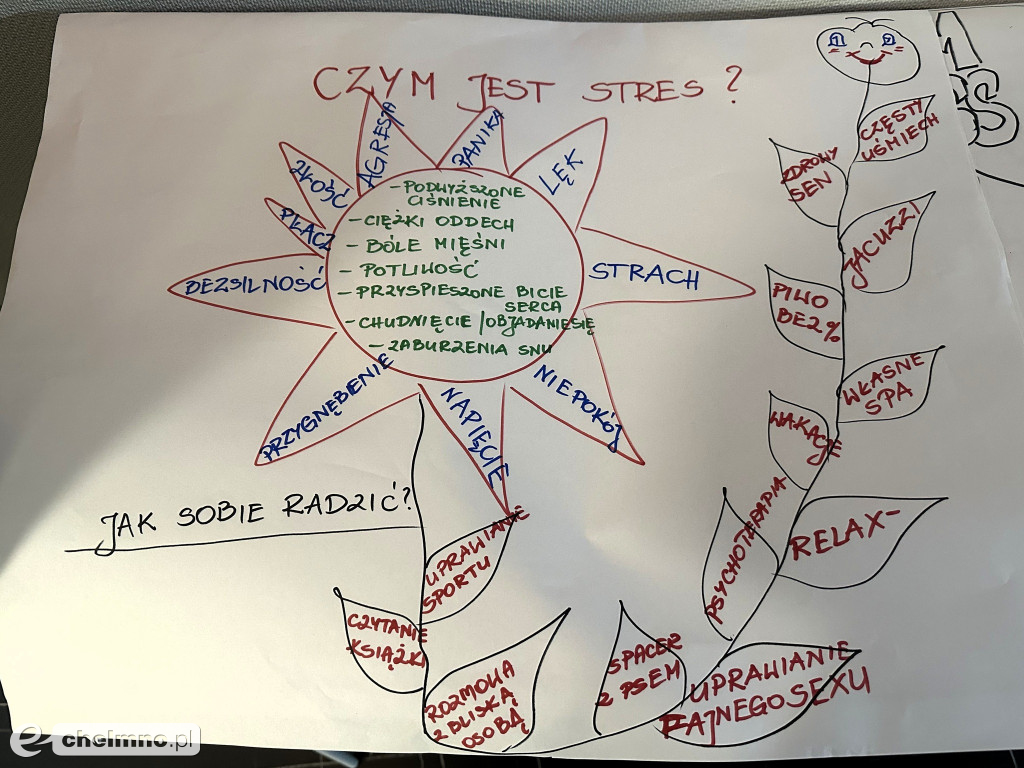 CZYM JEST STRES ?
AGRESJA
PANIKA
LĘK
ZŁOŚĆ
PŁACZ
BEZSILNOŚĆ
STRACH
- PODWYŻSZONE
CIŚNIENIE
- CIĘŻKI ODDECH
- BÓLE MIĘŚNI
- POTLIWOŚĆ
- PRZYSPIESZONE BICIE
SERCA
- CHUDNIĘCIE / OBJADANIE SIĘ
- ZABURZENIA SNU
PRZYGNĘBIENIE
NAPIĘCIE
NIEPOKÓJ
JAK SOBIE RADZIĆ?
UPRAWIANIE
SPORTU
CZYTANIE
KSIĄŻKI
ROZMOWA
Z BLISKĄ
OSOBĄ
SPACER
Z PSEM
UPRAWIANIE
FAJNEGO SEXU
PSYCHOTERAPIA
RELAX-
WAKACJE
WŁASNE
SPA
PIWO
BEZ %
JACUZZI
ZDROWY
SEN
CZĘSTY
UŚMIECH
e-chelmno.pl